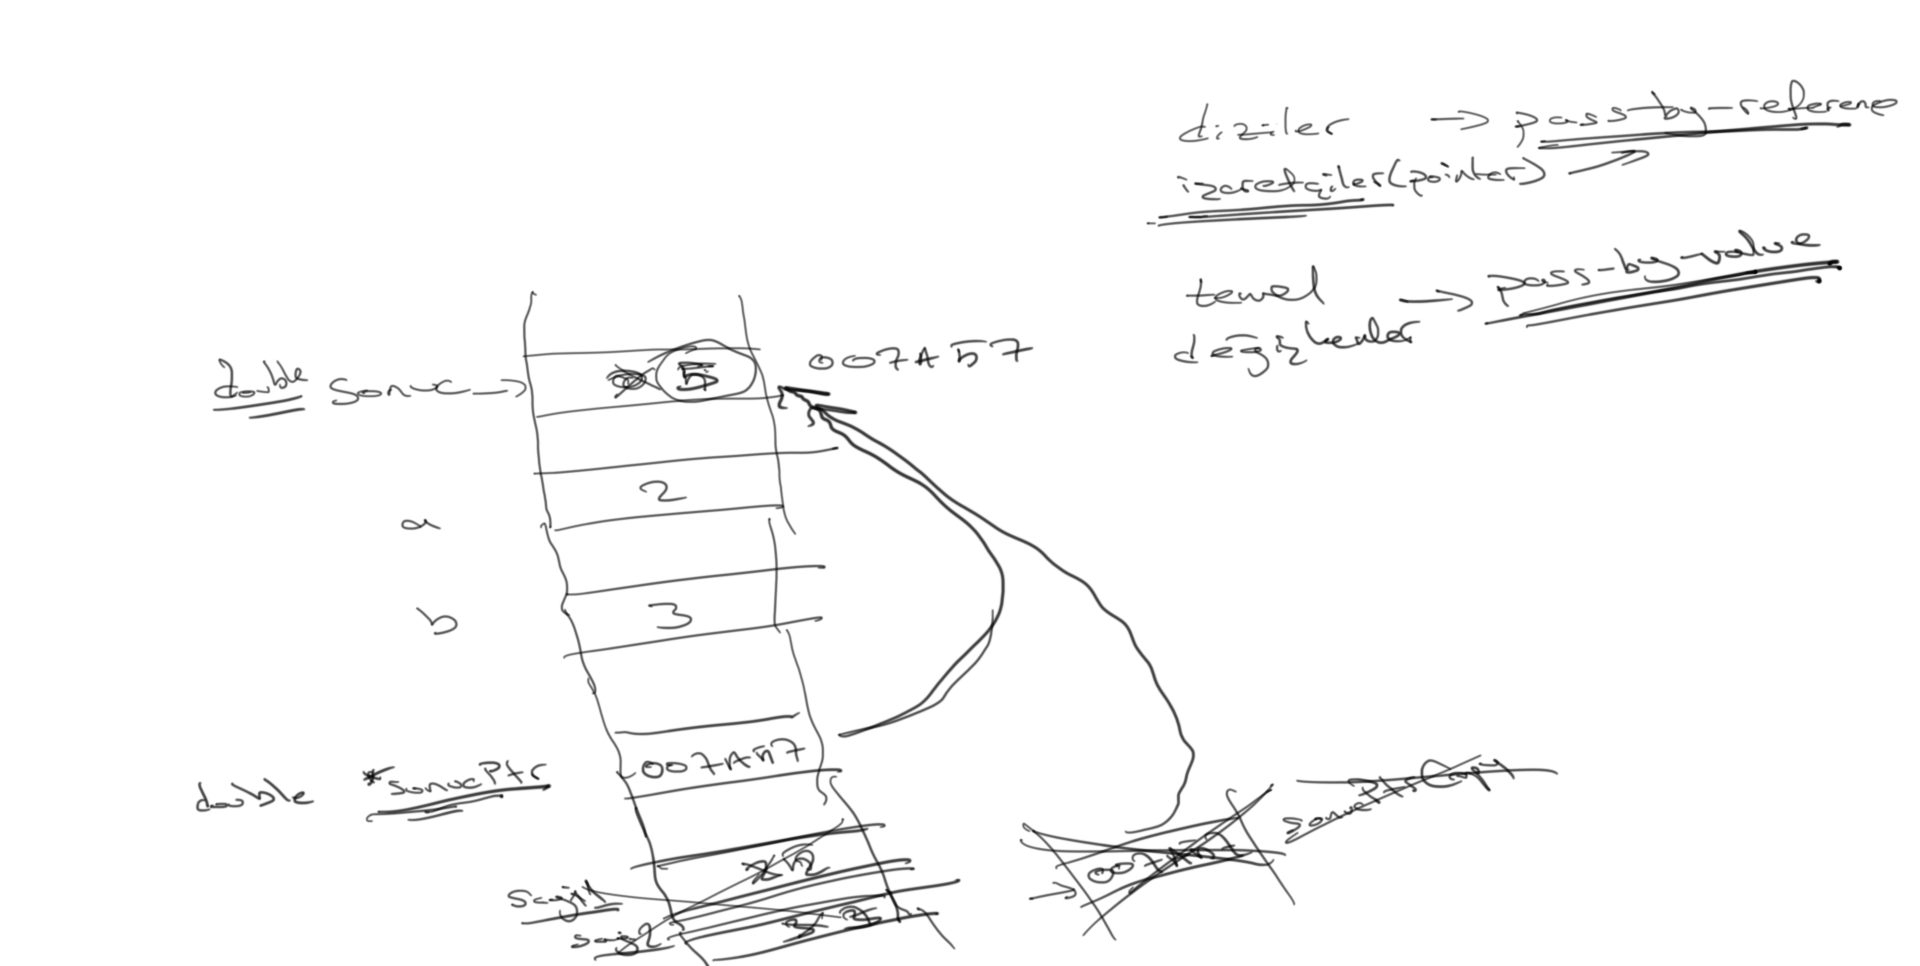 diziler → pass-by-referenc
işaretçiler(pointer)
temel → pass-by-value
değişkenler
double sonuc → 5 007A57
2
a
b 3
double *sonucPtr 007A57
sayi1
sayi2
→ 007A57 sonucPtrCopy